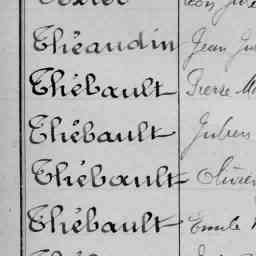 Théaudin Jean
Thébault Pierre
Thébault Julien
Thébault Olivier
Thébault Emile